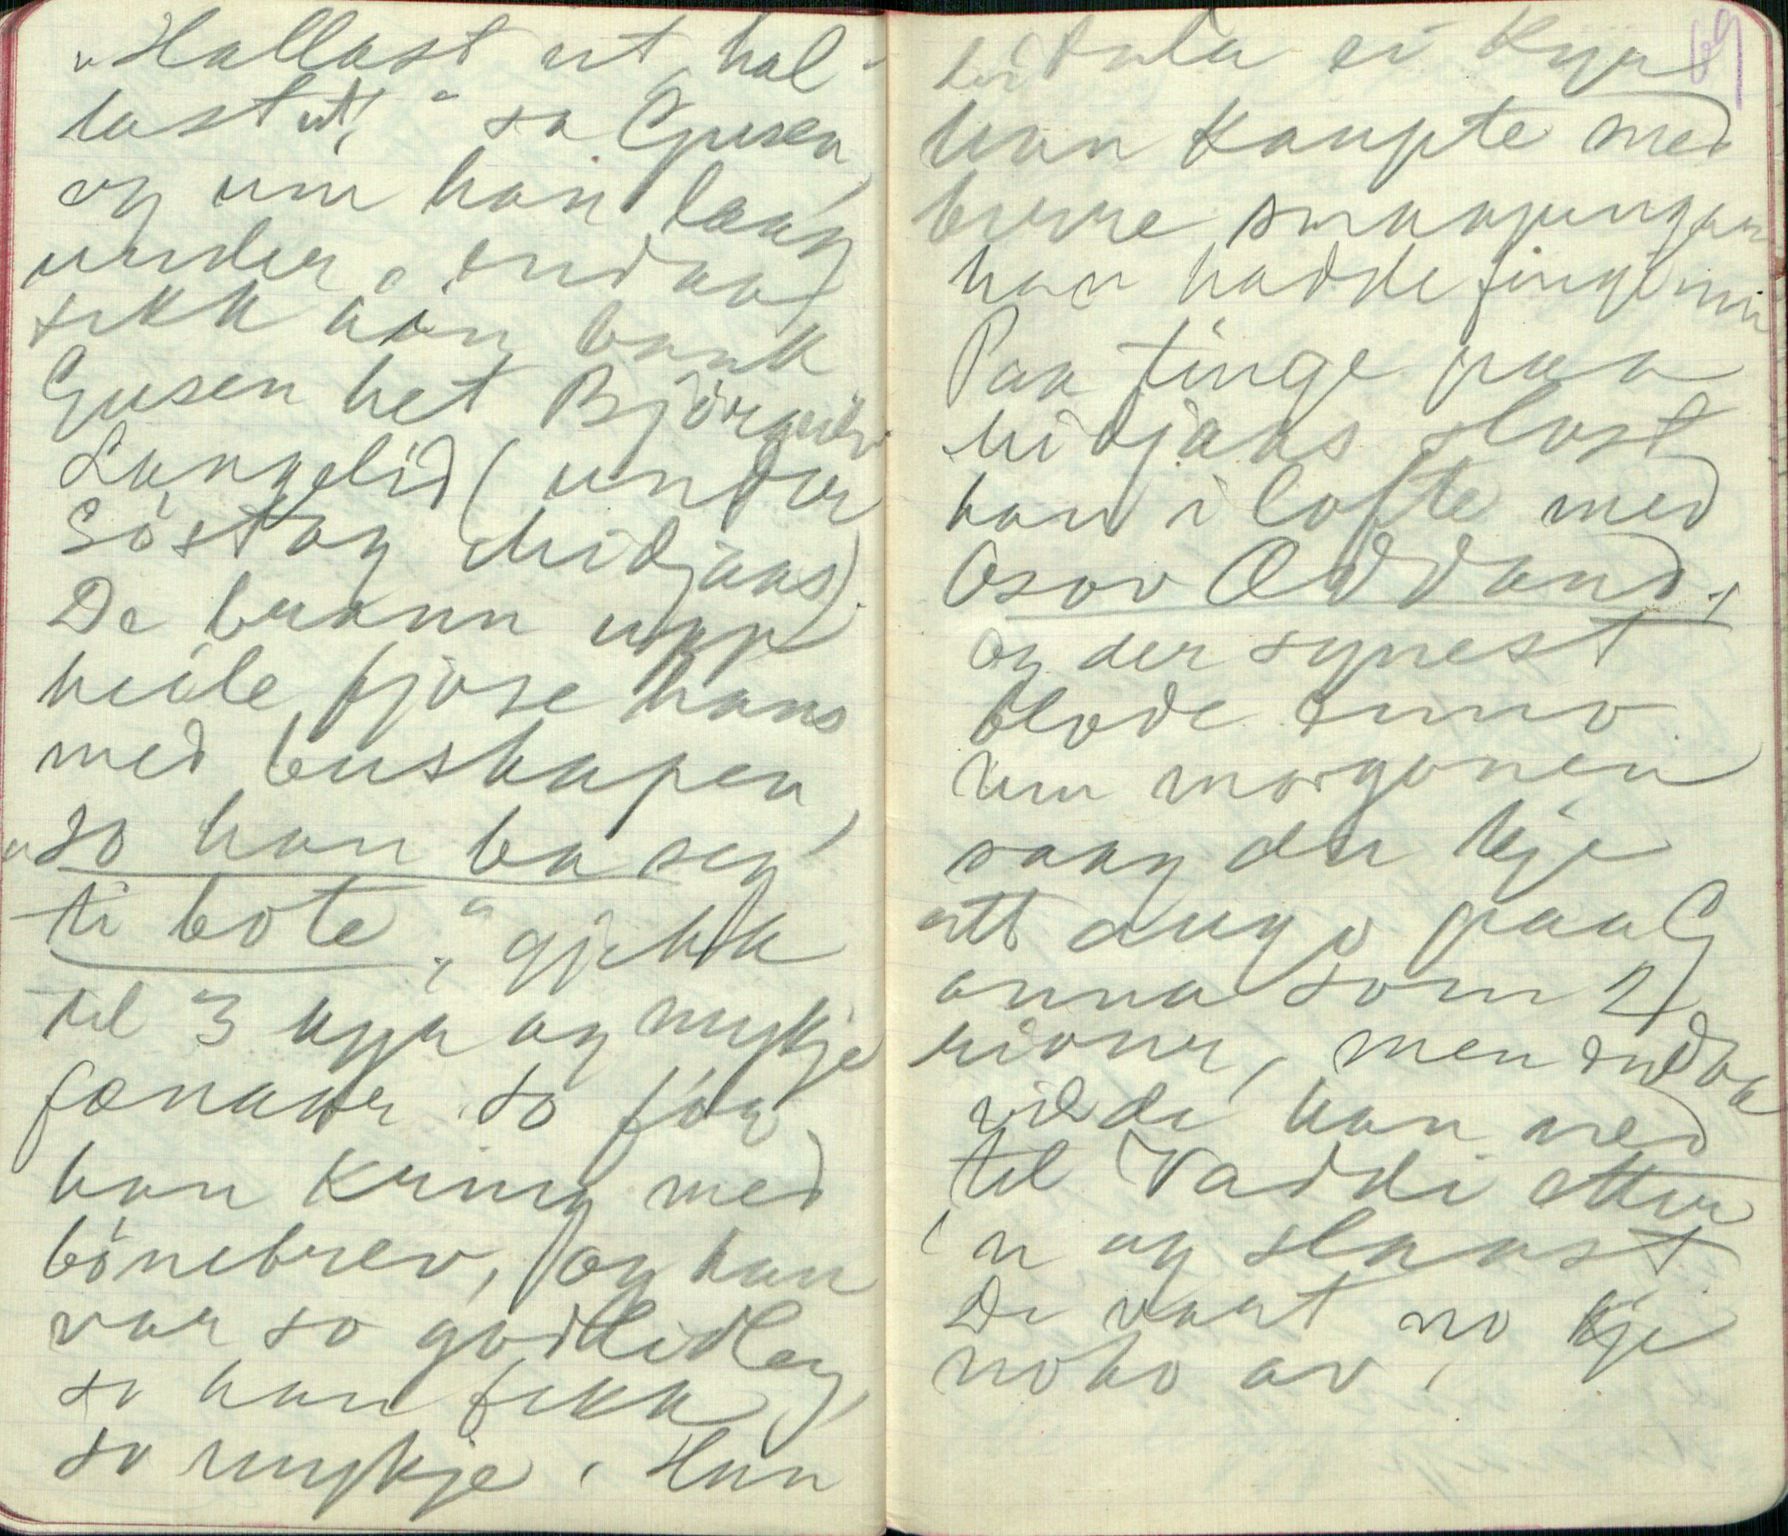 "Hallast ut, hal-
last ut," sa Gusen,
og um han laag
under, endaa
fekk han bank
Gusen het Björgulv
Langelid (under
Söstog Midjaas).
De brann upp
heile fjose hans
med buskapen,
"so han ba seg
ti bote", gjekk
til 3 kyr og mykje
fænaar so fór
han kring med
bönebrev, og han
var so godlidleg,
so han fekk
so mykje. Han
69
ei kyr
han kaupte med
berre smaapengan
han hadde finge inn
Paa tinge paa
Midjaas slost
han i lofte med
Osov Øddand,
og der synest
blode enno.
Um morgonen
saag du kje
att augo paa G
anna som 2
rivur, men endaa
vilde han ned
til Vaddi etter
'n og slaast
De vart no kje
noko av.